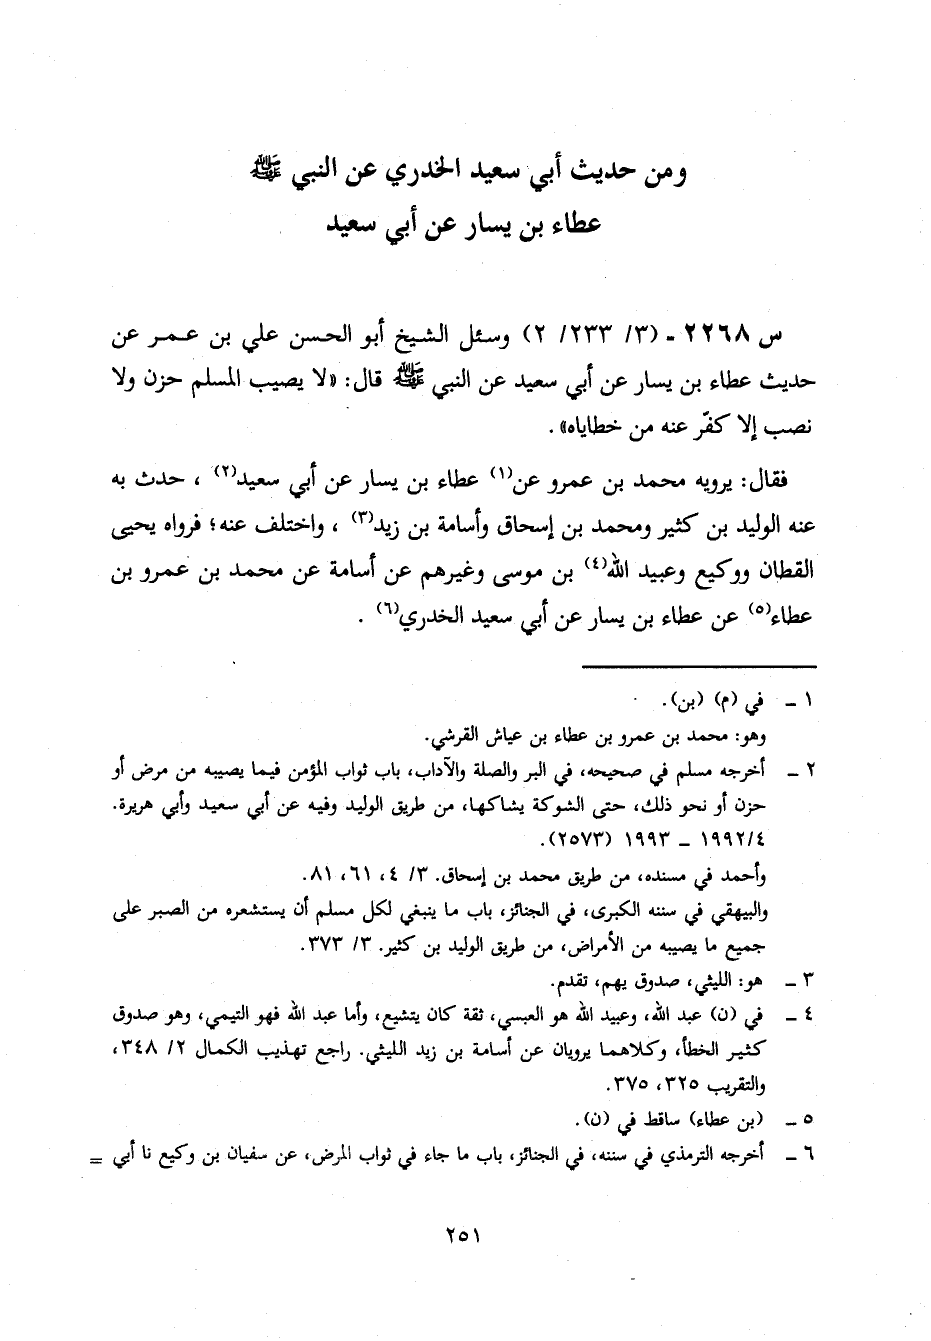 ومن حديث أبي سعيد الخدري عن النبي ﷺ
عطاء بن يسار عن أبي سعيد
س ٢٢٦٨ ـ (٣/ ٢٣٣/ ٢) وسئل الشيخ أبو الحسن علي بن عمر عن
حديث عطاء بن يسار عن أبي سعيد عن النبي ﷺ قال: «لا يصيب المسلم حزن ولا
نصب إلا كفّر عنه من خطاياه».
فقال: يرويه محمد بن عمرو عن(١) عطاء بن يسار عن أبي سعيد(٢)، حدث به
عنه الوليد بن كثير ومحمد بن إسحاق وأسامة بن زيد(٣)، واختلف عنه؛ فرواه يحيى
القطان ووكيع وعبيد الله(٤) بن موسى وغيرهم عن أسامة عن محمد بن عمرو بن
عطاء(٥) عن عطاء بن يسار عن أبي سعيد الخدري(٦).
١ ـ في (م) (بن).
وهو: محمد بن عمرو بن عطاء بن عياش القرشي.
٢ ـ أخرجه مسلم في صحيحه، في البر والصلة والآداب، باب ثواب المؤمن فيما يصيبه من مرض أو
حزن أو نحو ذلك، حتى الشوكة يشاكها، من طريق الوليد وفيه عن أبي سعيد وأبي هريرة.
٤/ ١٩٩٢ ـ ١٩٩٣ (٢٥٧٣).
وأحمد في مسنده، من طريق محمد بن إسحاق. ٣/ ٤، ٦١، ٨١.
والبيهقي في سننه الكبرى، في الجنائز، باب ما ينبغي لكل مسلم أن يستشعره من الصبر على
جميع ما يصيبه من الأمراض، من طريق الوليد بن كثير. ٣/ ٣٧٣.
٣ ـ هو: الليثي، صدوق يهم، تقدم.
٤ ـ في (ن) عبد الله، وعبيد الله هو العبسي، ثقة كان يتشيع، وأما عبد الله فهو التيمي، وهو صدوق
كثير الخطأ، وكلاهما يرويان عن أسامة بن زيد الليثي. راجع تهذيب الكمال ٢/ ٣٤٨،
والتقريب ٣٢٥، ٣٧٥.
٥ ـ (بن عطاء) ساقط في (ن).
٦ ـ أخرجه الترمذي في سننه، في الجنائز، باب ما جاء في ثواب المرض، عن سفيان بن وكيع نا أبي =
٢٥١